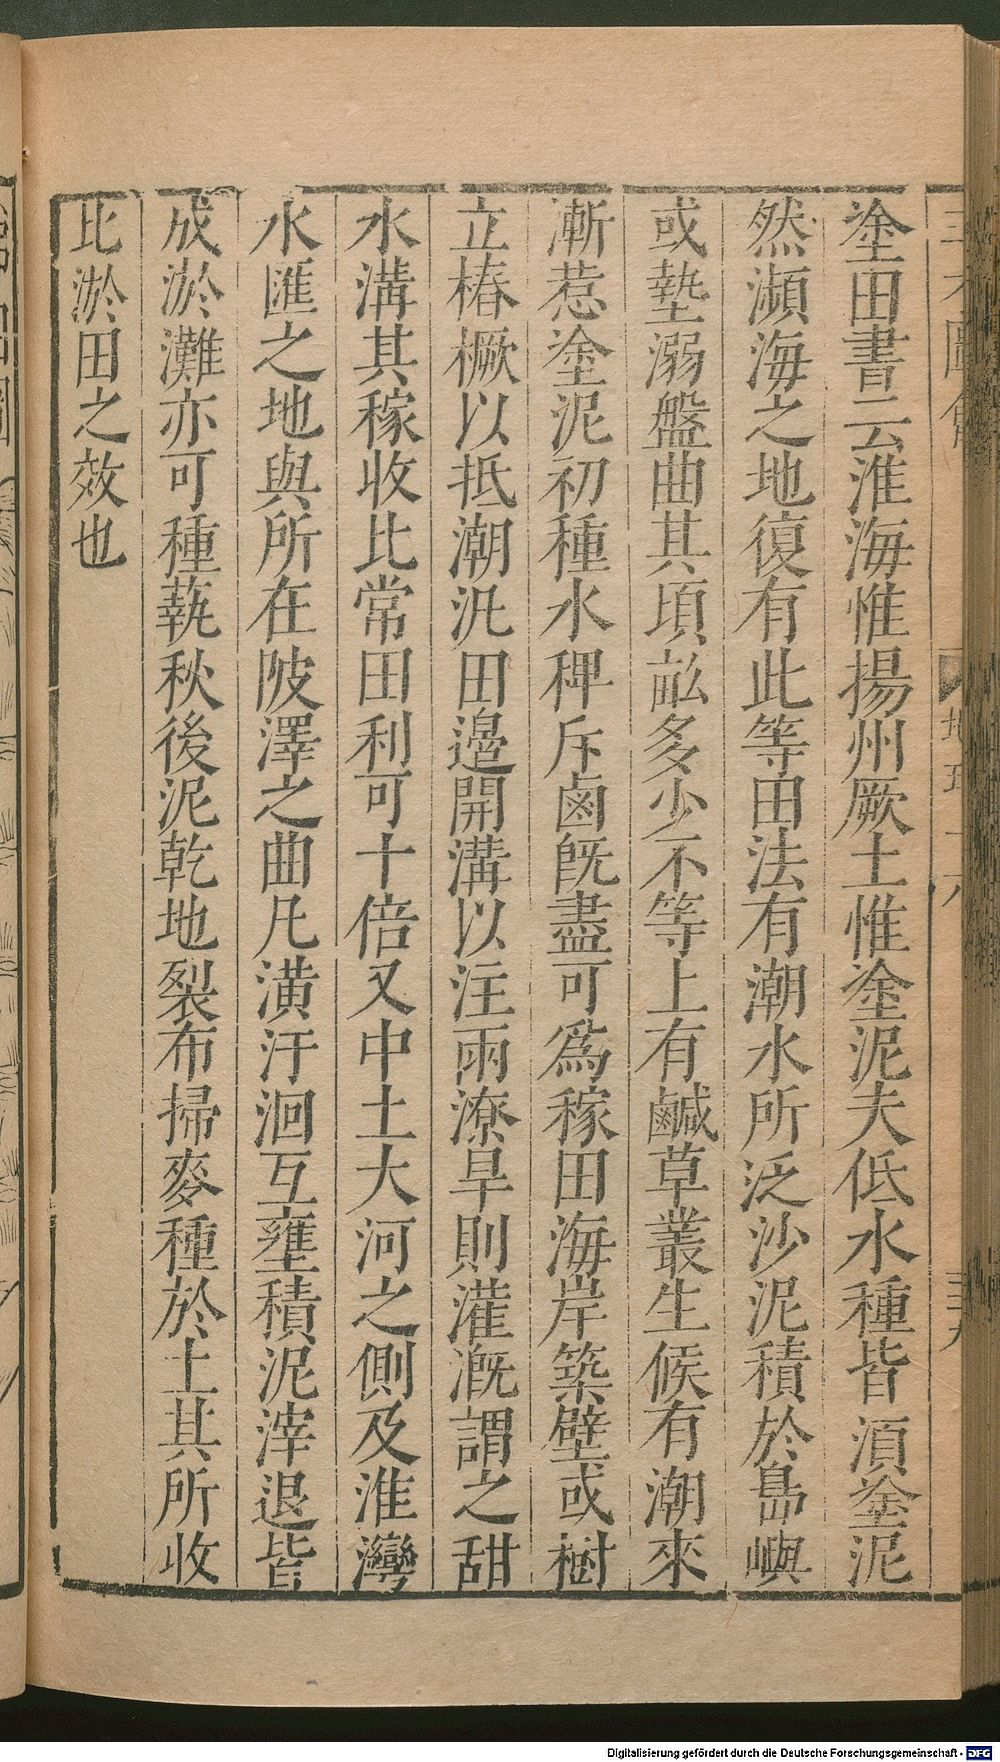 塗田書云淮海惟揚州厥土惟塗泥夫低水種皆湏塗泥
然瀕海之地復有此等田法有潮水所泛沙泥積於島嶼
或墊溺盤曲其頃畝多少不等上有鹹草叢生候有潮來
漸惹塗泥初種水稗斥鹵既盡可爲稼田海岸築壁或樹
立樁橛以抵潮汎田邊開溝以注雨潦旱則灌溉謂之甜
水溝其稼收比常田利可十倍又中土大河之側及淮灣
水匯之地與所在陂澤之曲凡潢汙洄互壅積泥滓退皆
成淤灘亦可種蓺秋後泥乾地裂布掃麥種於土其所收
比淤田之效也
Digitalisierung gefördert durch die Deutsche Forschungsgemeinschaft - DFG